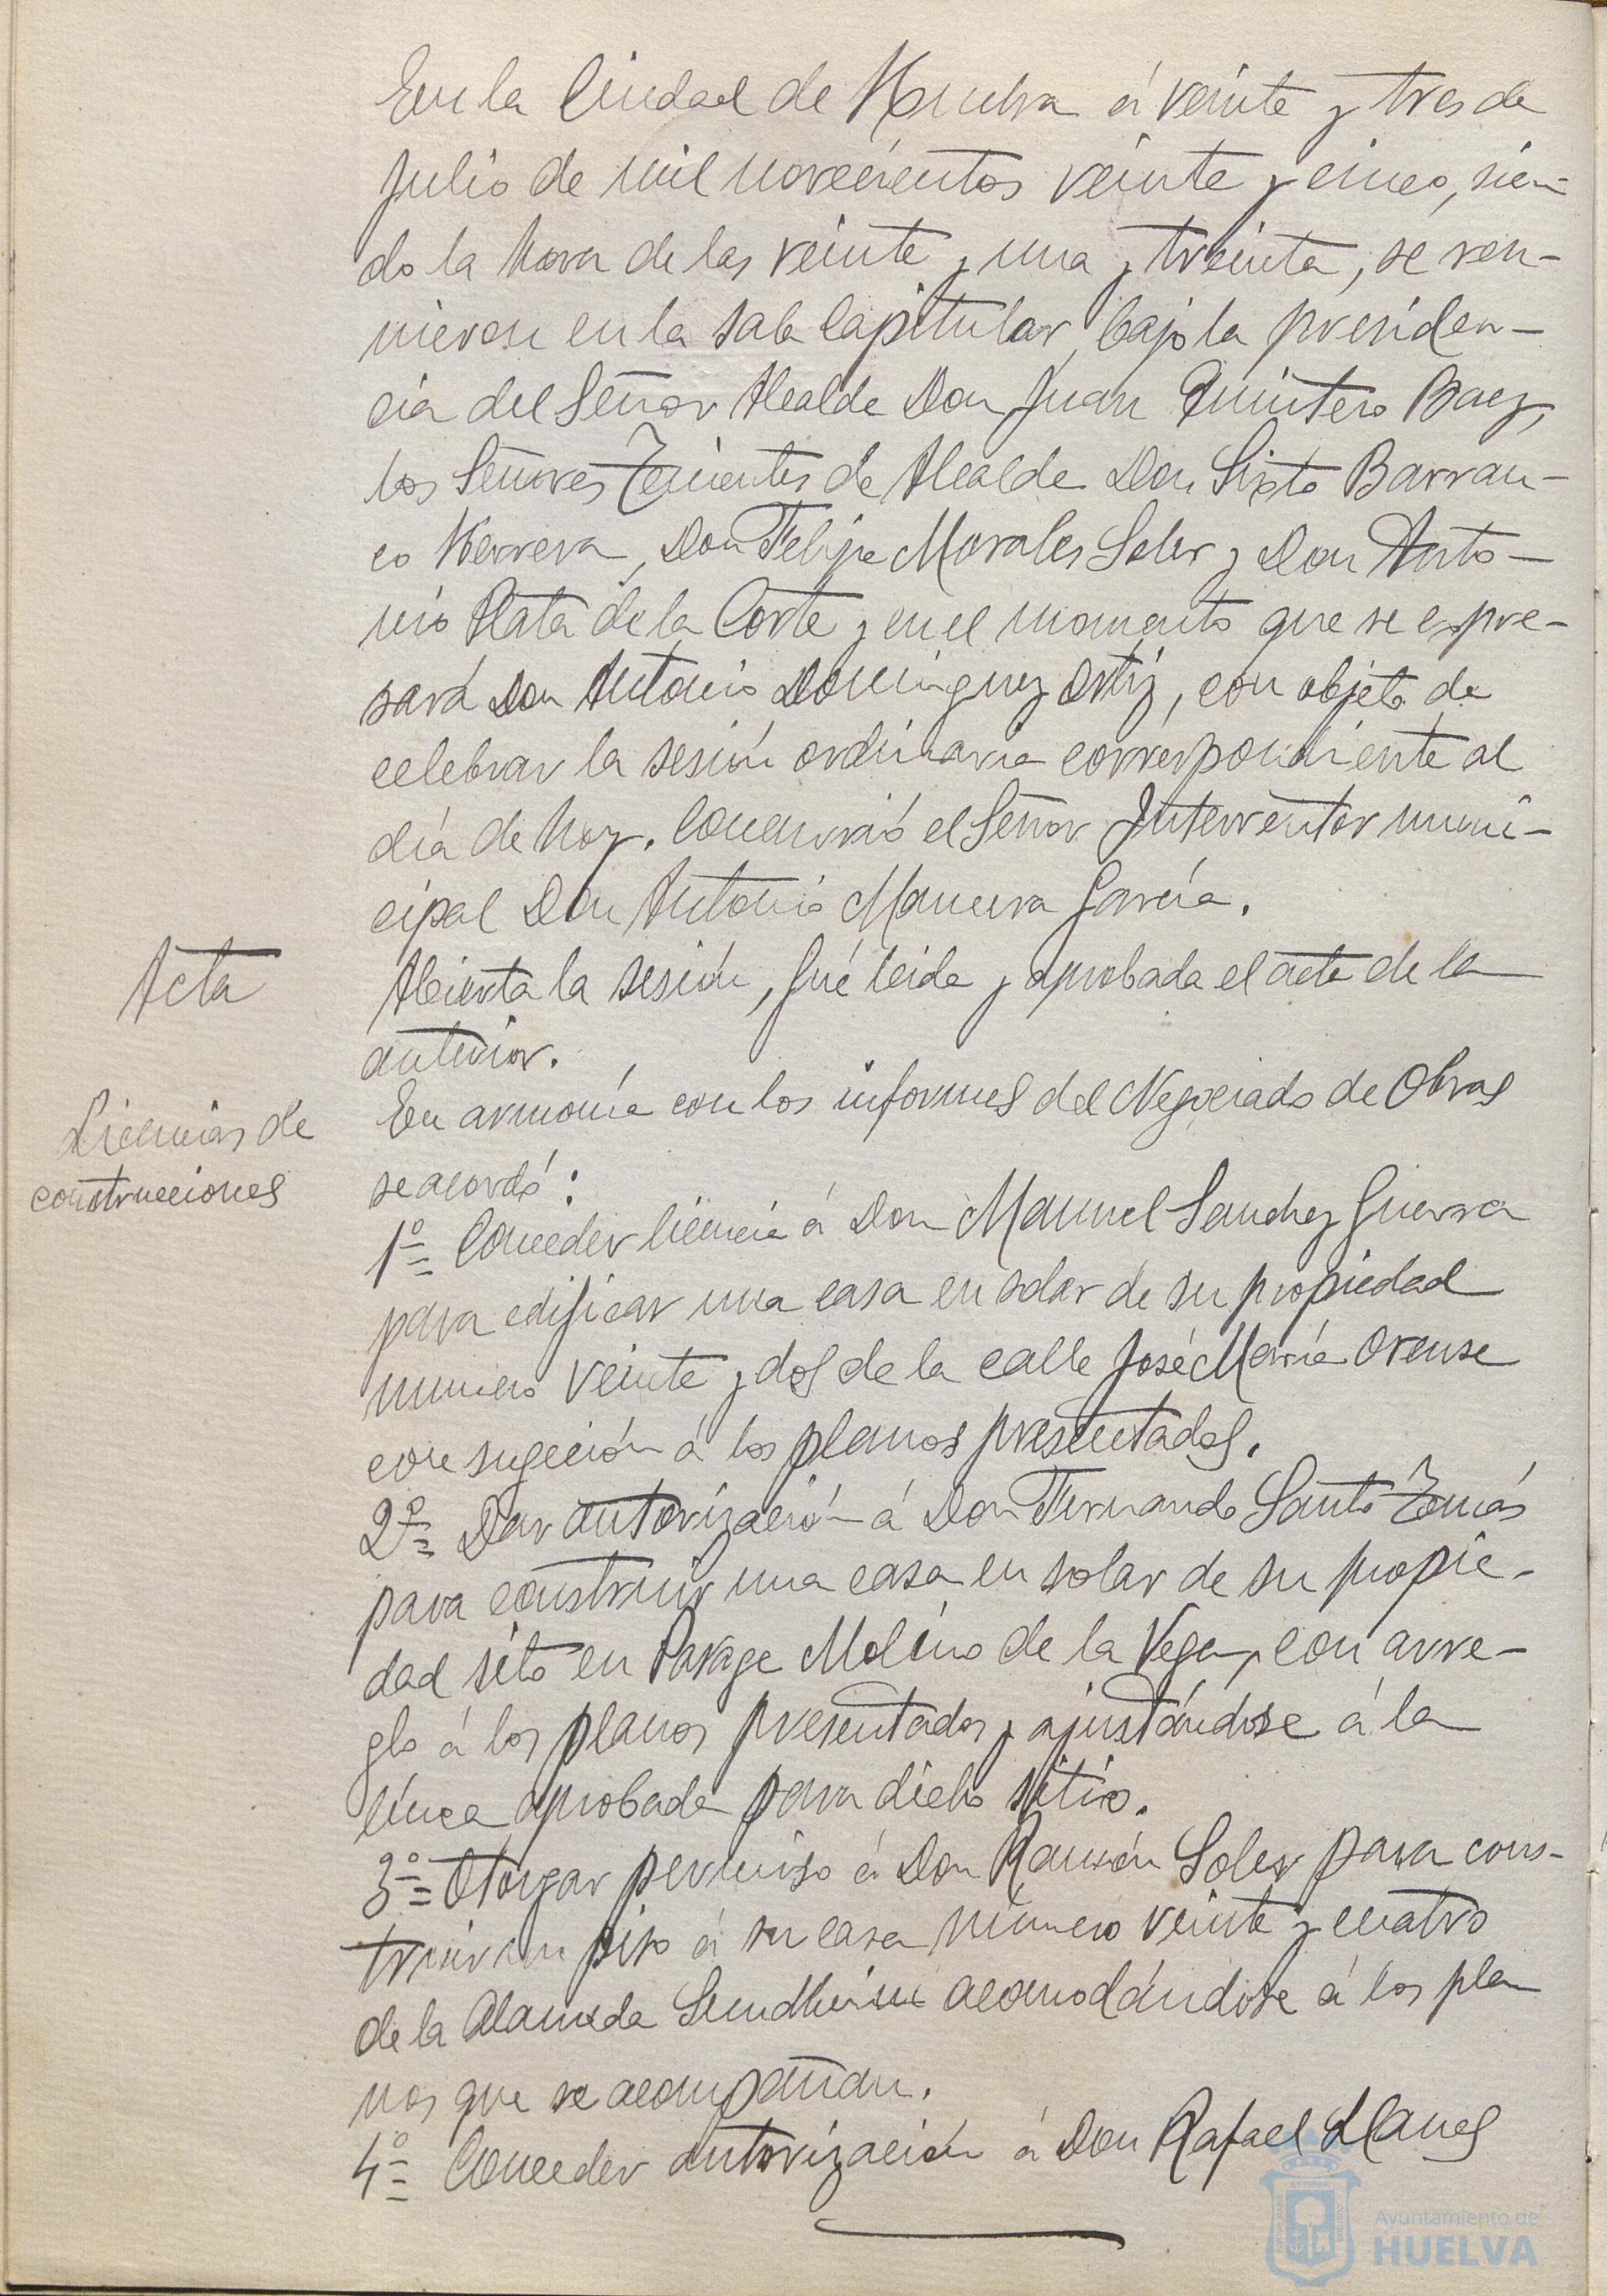 En la Ciudad de Huelva á veinte y tres de
Julio de mil novecientos veinte y cinco, sien-
do la hora de las veinte y una y treinta, se reu-
nieron en la sala Capitular, bajo la presiden-
cia del Señor Alcalde Don Juan Quintero Baez,
los Señores Tenientes de Alcalde Don Sixto Barran-
co Herrera, Don Felipe Morales Soler y Don Anto-
nio Plata de la Corte y en el momento que se expre-
sará Don Antonio Dominguez Ortiz, con objeto de
celebrar la sesión ordinaria correspondiente al
día de hoy. Concurrió el Señor Interventor muni-
cipal Don Antonio Mancera García.
Acta
Abierta la sesión, fué leida y aprobada el acta de la
anterior.
Licencias de
construcciones
En armonía con los informes del Negociado de Obras
se acordó:
1º= Conceder licencia á Don Manuel Sanchez Guerra
para edificar una casa en solar de su propiedad
número veinte y dos de la calle José María Orense
con sugeción á los planos presentados.
2º= Dar autorización á Don Fernando Santo Tomás
para construir una casa en solar de su propie-
dad sito en Parage Molino de la Vega, con arre-
glo á los planos presentados y ajustándose á la
línea aprobada para dicho sitio.
3º= Otorgar permiso á Don Ramón Soler para cons-
truir un piso á su casa número veinte y cuatro
de la Alameda Sundheim acomodándose á los pla
nos que se acompañan.
4º= Conceder autorización á Don Rafael Llanes
Ayuntamiento de
HUELVA